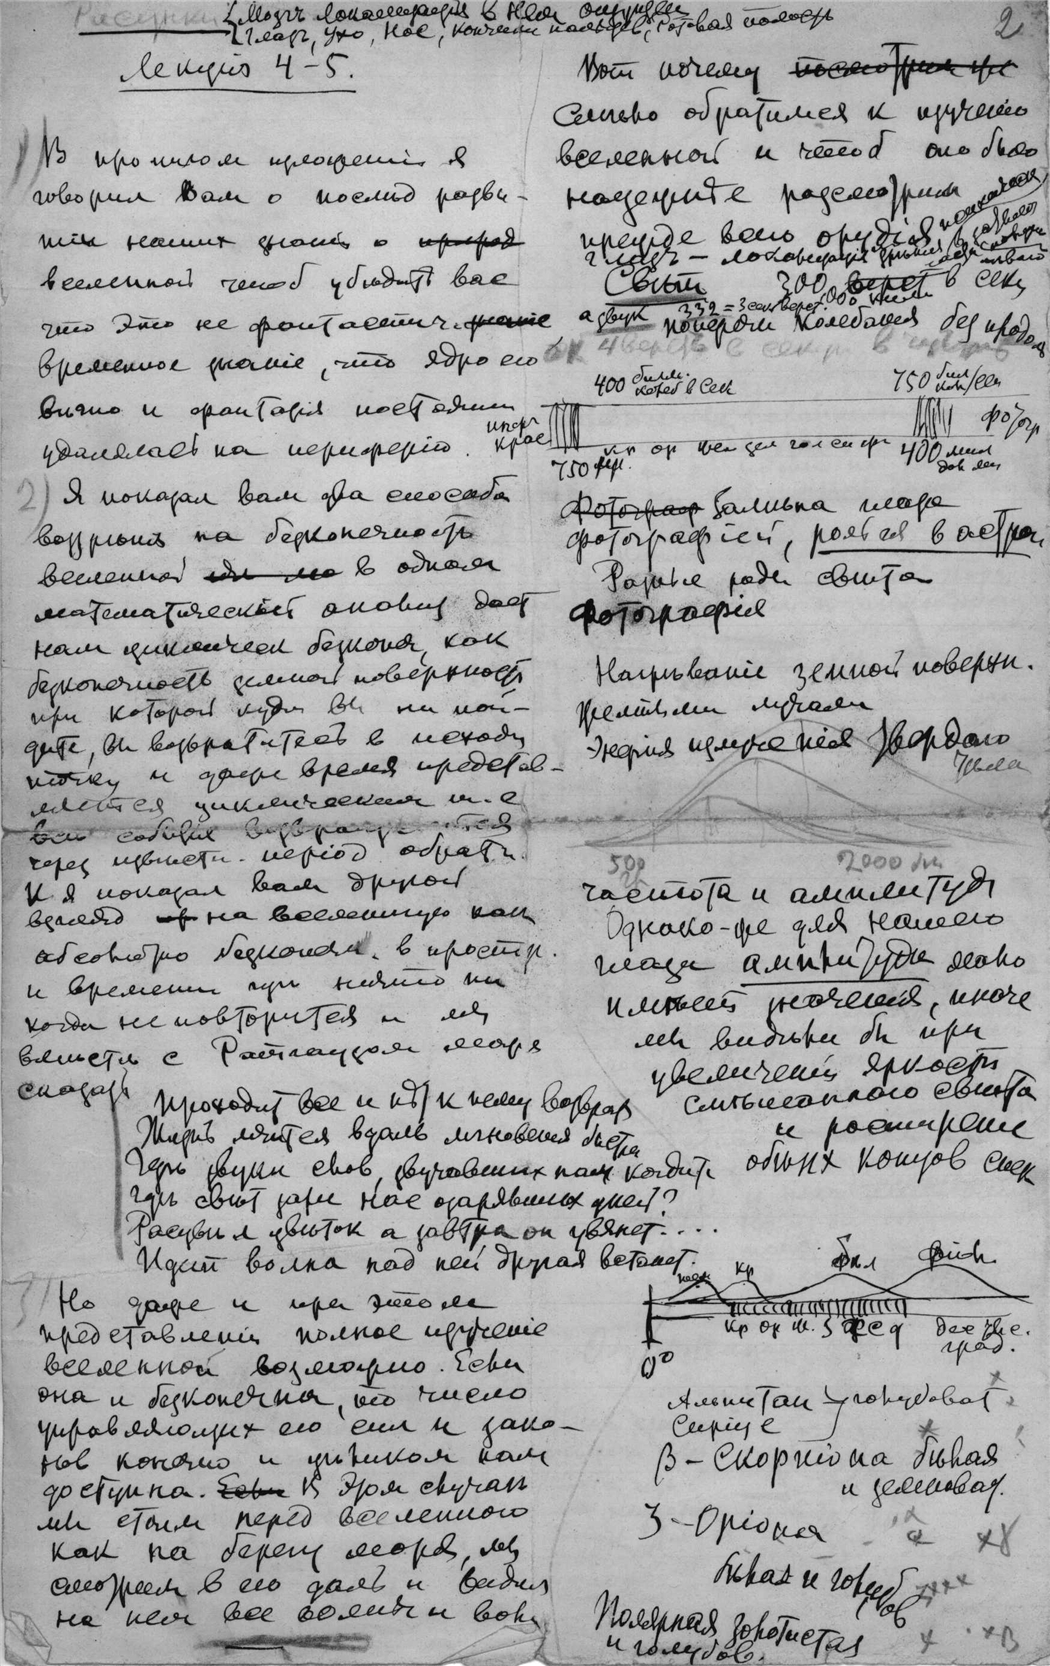 Рисунки
Мозгъ локализація в нем ощущен
Глаз, ухо, нос, кончики пальцев, ротовая полость
2
Лекция 4-5.
1) В прошлом изложеніи я
говорил вам о послѣд разви-
тіи наших знаній о природ
вселенной чтоб убѣдить вас
что это не фантастич.
временное знаніе, что ядро его
вѣчно и фантазія постоянно
удалялась на периферію.
2) Я показал вам два способа
воззрѣнія на безконечность
вселенной в одном
математический анализ дает
нам циклическ безконеч, как
безконечность земной поверхности
при которой куда вы ни пой-
дите, вы возвратитесь в исходн
точку и даже время представ-
ляется циклическим т.е.
все событія возвращаются
через извѣстн. період обратн.
И я показал вам другой
взгляд на вселенную как
абсолютно безконечн. в простр.
и времени гдѣ ничто ни
когда не повторится и мы
вмѣстѣ с Ратгаузом можем
сказать
Проходит все и нѣт к нему возврата
Жизнь мчится вдаль мгновенія быстрѣ
Гдѣ звуки слов, звучавших нам когда то
Гдѣ свѣт зари нас озарявших дней?
Расцвѣл цвѣток а завтра он увянет....
Идет волна над ней другая встанет.
3) Но даже и при этом
представленіи полное изученіе
вселенной возможно. Если
она и безконечна, то число
управляющих ею сил и зако-
нов конечно и цѣликом нам
доступна. Если В этом случаѣ
мы стоим перед вселенною
как на берегу моря, мы
смотрим в его даль и видим
на нем все волны и волны
Вот почему
смѣло обратимся к изученію
вселенной и чтоб оно было
надежнѣе разсмотрим
прежде всего орудія познанія
глаз - локализація зрѣнія
Свѣт 300 000 килом в сек
а звук 332 = 3 сек верст
поперечн колебанія без продол
400 билл. колеб в сек
750 бил кол/сек
инфр крас
кр ор жел зел гол син фі
фотогр
750
400 мил дол мм
Фотограф Замѣна глаза
фотографіей, рояль ея в астрон
Разные роды свѣта
фотографія
Нагрѣваніе земной поверхн.
желтыми лучами
Энергія излученія твердого
тѣла
500
2000
частота и амплитуда
Однако-же для нашего
глаза амплитуда мало
имѣет значенія, иначе
мы видѣли бы при
увеличеніи яркости
смѣшанного свѣта
и расширеніе
обоих концов спек
кр
бѣл
фіол
кр ор ж. з г с ф
0°
град.
Альтаир
Сиріус } голубоват
β - Скорпіона бѣлая
и зеленоват.
3 - Оріона
бѣлая и голуб
Полярная золотистая
и голубов.